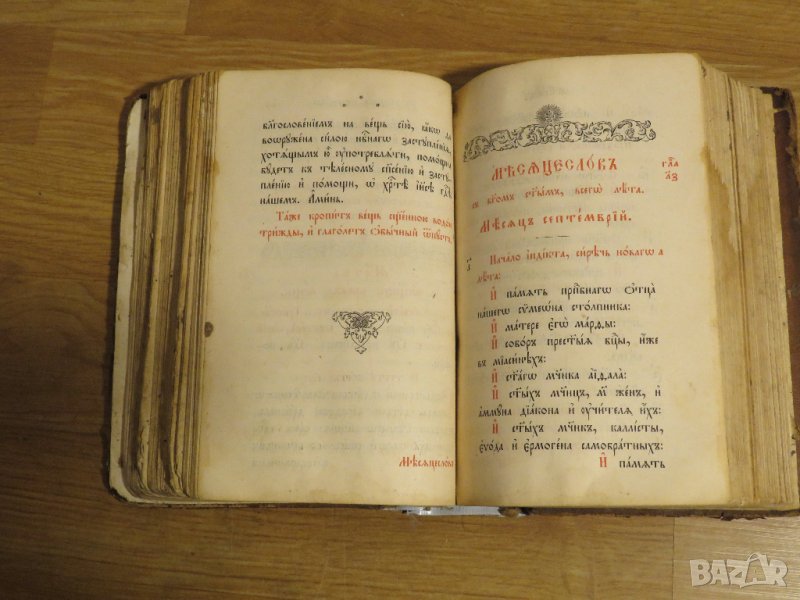 бл҃гословенїемъ на вещь сїю̀, ꙗ҆́кѡ да
воѡрꙋжена си́лою нбⷭ҇нагѡ застꙋпле́нїѧ,
хотѧ́щымъ ю҆̀ ᲂу҆потреблѧ́ти, помо́щна
бꙋ́детъ къ тѣле́сномꙋ спⷭ҇е́нїю и҆ застꙋ-
пле́нїю и҆ по́мощи, ѡ҆ хрⷭ҇тѣ̀ і҆и҃сѣ гдⷭ҇ѣ
на́шемъ. А҆ми́нь.
Та́же кропи́тъ ве́щь сщ҃е́нною водо́ю
три́жды, и҆ глаго́летъ ѻ҆бы́чный ѿпꙋ́стъ.
Мѣсѧцесло́въ
МѢСѦЦЕСЛО́ВЪ
глава̀
а҃з
съ бг҃омъ ст҃ы́мъ, всегѡ̀ лѣ́та.
Мѣ́сѧцъ септе́мврїй.
Нача́ло і҆нді́кта, си́рѣчь но́вагѡ
лѣ́та:
а҃
И҆ па́мѧть прпⷣбнагѡ ѻ҆тца̀
на́шегѡ сѷмеѡ́на сто́лпника:
И҆ ма́тере є҆гѡ̀ ма́рѳы:
И҆ собо́ръ прест҃ы́ѧ бц҃ы, и҆́же
въ мїасине́хъ:
И҆ ст҃а́гѡ мч҃нка а҆їѳала̀:
И҆ ст҃ы́хъ мч҃ницъ, м҃ же́нъ, и҆
а҆ммꙋ́на дїа́кона и҆ ᲂу҆чи́телѧ и҆́хъ:
И҆ ст҃ы́хъ мч҃нкъ, калли́сты,
є҆ѵо́да и҆ є҆рмоге́на самобра́тныхъ:
И҆ па́мѧть
BAZAR